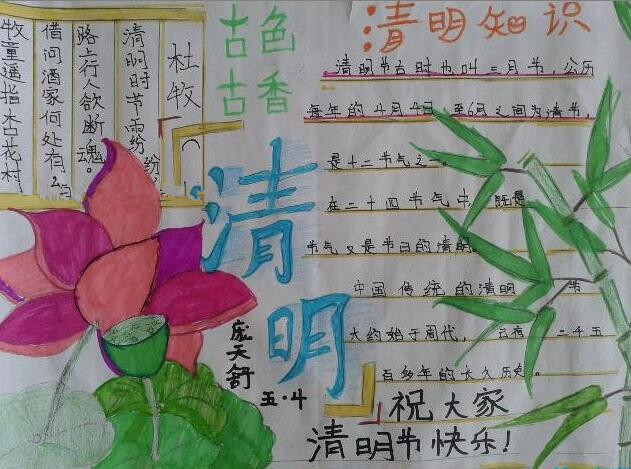 古色
古香
杜牧
清明时节雨纷纷
路上行人欲断魂。
借问酒家何处有
牧童遥指杏花村
清明
庞天舒
五·4
清明知识
清明节古时也叫三月节，公历
每年的4月4日 至6日之间为清节，
是十二节气之一。
在二十四节气中，既是
节气又是节日的清明
中国传统的清明 节
大约始于周代，有 二千五
百多年的长久历史。
祝大家
清明节快乐！